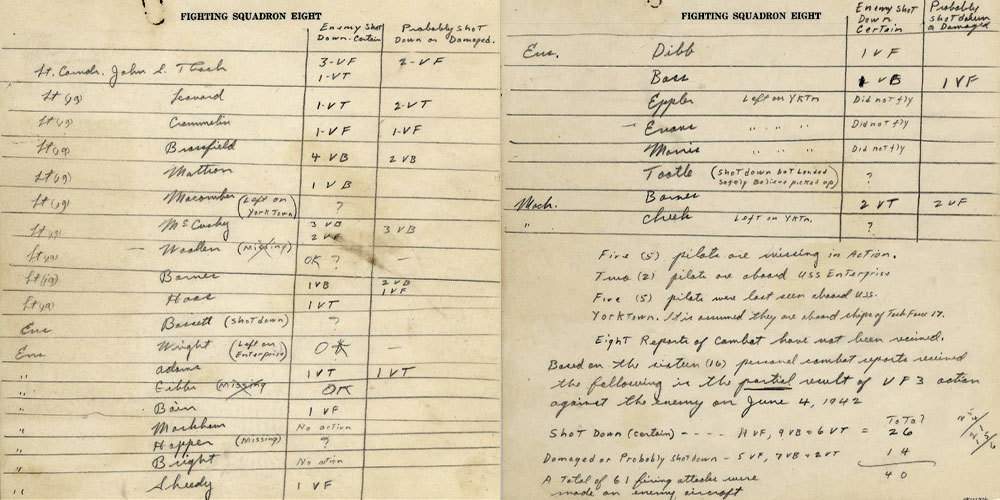 FIGHTING SQUADRON EIGHT
Enemy Shot Down. Certain Probably Shot Down or Damaged.
Lt. Comdr. John S. Thach 3-VF 2-VF
1-VT
Lt(jg) Leonard 1-VT 2-VT
Lt(jg) Crommelin 1-VF 1-VF
Lt(jg) Brassfield 4 VB 2 VB
Lt(jg) Mattson 1 VB
Lt(jg) Macomber (Left on Yorktown) ?
Lt(jg) McCuskey 3 VB 3 VB
2 VF
Lt(jg) - Woollen (Missing) OK ? -
Lt(jg) Barnes 1VB 2VB
1VF
Lt(jg) Haas 1VT
Ens Bassett (Shot down) ?
Ens Wright (Left on Enterprise) OK -
" Adams 1 VT 1 VT
" Gibbs (Missing) OK
" Bain 1 VF
" Markham No action
" Hopper (Missing) ?
" Bright No action
" Sheedy 1 VF
FIGHTING SQUADRON EIGHT
Enemy Shot Down Certain Probably shot down or Damaged
Ens. Dibb 1 VF
Bass 1 VB 1 VF
Eppler Left on YKTn Did not fly
- Evans " " " Did not fly
Morris " " " Did not fly
Tootle (Shot down but landed safely Believe picked up) ?
Mach. Barnes 2 VT 2 VF
" Cheek Left on YKTn. ?
Five (5) pilots are missing in Action.
Two (2) pilots are aboard USS Enterprise
Five (5) pilots were last seen aboard USS.
Yorktown. It is assumed they are aboard ships of Task Force 17.
Eight Reports of Combat have not been received.
Based on the sixteen (16) personal combat reports received
the following is the partial result of VF 3 action
against the enemy on June 4, 1942
Total
Shot Down (certain) - - - - 11 VF, 9 VB = 6 VT = 26
Damaged or Probably shot down - 5 VF, 7 VB = 2 VT 14
A Total of 61 firing attacks were 40
made on enemy aircraft